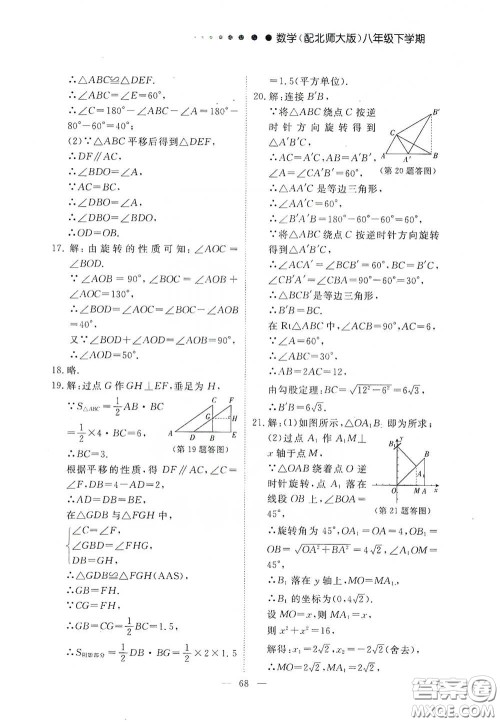 数学(配北师大版)八年级下学期
∴△ABC≌△DEF.
∴∠ABC=∠E=60°,
∴∠C=180°-∠A-∠ABC=180°-
80°-60°=40°;
(2)∵△ABC平移后得到△DEF,
∴DF∥AC,
∴∠BDO=∠A,
∵AC=BC,
∴∠DBO=∠A,
∴∠DBO=∠BDO,
∴OD=OB.
17.解:由旋转的性质可知:∠AOC=
∠BOD.
∵∠AOB=90°,∠BOC=∠AOB,
∠AOC=130°,
∴∠BOC=∠AOC-∠AOB
=40°,
又∵∠DOA+∠AOB=90°,
∴∠AOD=50°.
18.略.
19.解:过点G作GH⊥EF,垂足为H,
∵S△ABC=1/2 AB·BC
=1/2×4·BC=6,
∴BC=3.
A E D B F C G H
(第19题答图)
根据平移的性质,得∠CBD=∠F,
∠C=∠F,DB=4-AD=2,
∴AD=DB=BE,
在△GDB与△FGH中,
∠C=∠F,
∠GBD=∠FHG,
DB=GH,
∴△GDB≌△FGH(AAS),
∴GB=FH.
∵CG=FH,
∴GB=CG=1/2 BC=1.5,
∴S阴影部分=1/2 DB·BG=1/2×2×1.5
=1.5(平方单位).
20.解:连接B′B,
∵将△ABC绕点C按逆
时针方向旋转得到
△A′B′C,
∴AC=A′C,AB=
A′B′,∠A=∠CA′B′=60°,
∴△AA′C是等边三角形,
∴∠AA′C=60°,
∴∠B′A′B=180°-60°-60°=60°,
∵将△ABC绕点C按逆时针方向旋转
得到△A′B′C,
∴∠ACA′=∠BCB′=60°,BC=B′C,
∠CB′A′=∠CBA=90°-60°=30°,
∴△BCB′是等边三角形,
∴∠CB′B=60°,
在Rt△ABC中,∠ABC=30°,AC=6,
∴AB=12,
由勾股定理:BC=√(12²-6²)=6√3,
∴B′B=6√3.
C A A′ B B′
(第20题答图)
21.解:(1)如图所示,△OA₁B₁即为所求;
(2)过点A₁作A₁M⊥
x轴于点M,
∵△OAB绕着点O逆
时针旋转,点A₁落在
线段OB上,∠BOA=
45°,
O M A x
(第21题答图)
∴旋转角为45°,OA=OA₁=4,OB₁=
OB=√(OA²+BA²)=4√2,∠A₁OM=
45°,
∴B₁落在y轴上,
∴B₁的坐标为(0,4√2),
设MO=x,则MA₁=x,
则x²+x²=16,
解得:x₁=2√2,x₂=-2√2(舍去),
∴MO=2√2,MA₁=2√2,
68